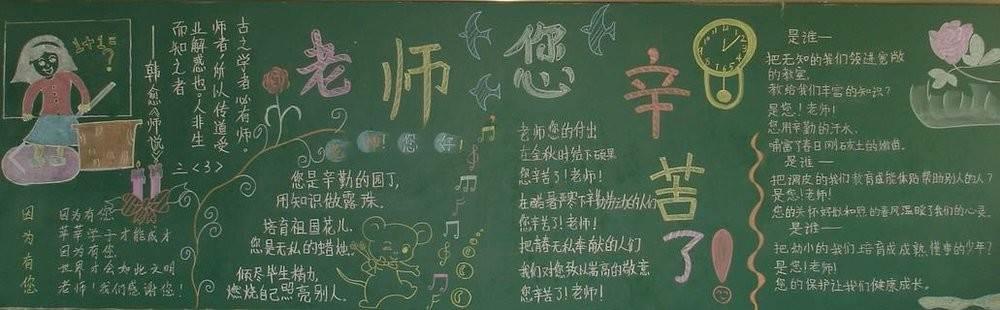 老师您辛苦了！
古之学者必有师。
师者，所以传道受
业解惑也。人非生
而知之者
——韩愈《师说》
三<3>
因为有您
因为有您
莘莘学子才能成才
因为有您
世界才会如此文明
老师！我们感谢您！
老师！您好！
您是辛勤的园丁，
用知识做露珠。
培育祖国花儿
您是无私的蜡烛。
倾尽毕生精力，
燃烧自己照亮别人。
老师您的付出
在金秋时结下硕果
您辛苦了！老师！
在酷暑严寒下辛勤劳动的人们
您辛苦了！老师！
把青春无私奉献的人们
我们对您致以崇高的敬意
您辛苦了！老师！
是谁—
把无知的我们领进宽敞
的教室，
教给我们丰富的知识？
是您！老师！
您用辛勤的汗水，
哺育了春日刚破土的嫩苗。
是谁—
把调皮的我们教育成能体贴帮助别人的人？
是您！老师！
您的关怀好似和煦的春风温暖了我们的心灵。
是谁—
把幼小的我们培育成成熟懂事的少年？
是您！老师！
您的保护让我们健康成长。